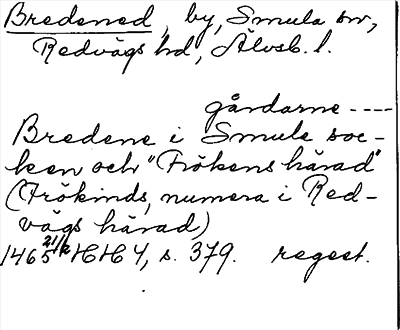 Bredened, by, Smula sn,
Redvägs hd, Älvsb. l.
gårdarne ----
Bredene i Smule soc-
ken och "Frökens härad"
(Frökinds, numera i Red-
vägs härad)
1465 21/2 HH 4, s. 379. regest.